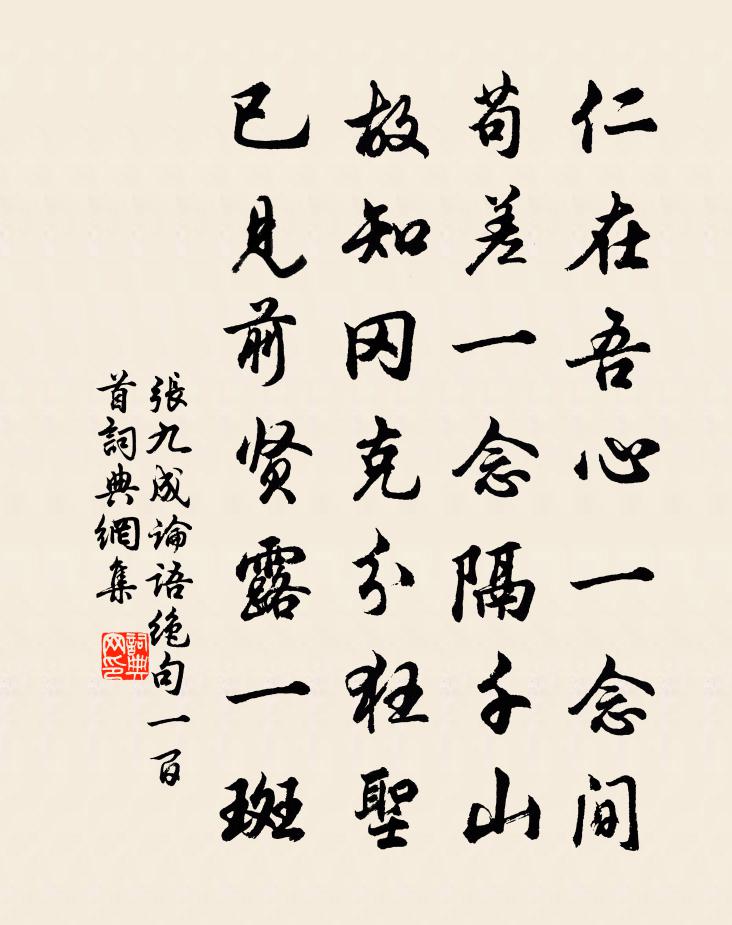 仁在吾心一念间
苟差一念隔千山
故知罔克分狂聖
已見前贤露一斑
張九成論語絶句一百
首詞典網集
詞典
网印